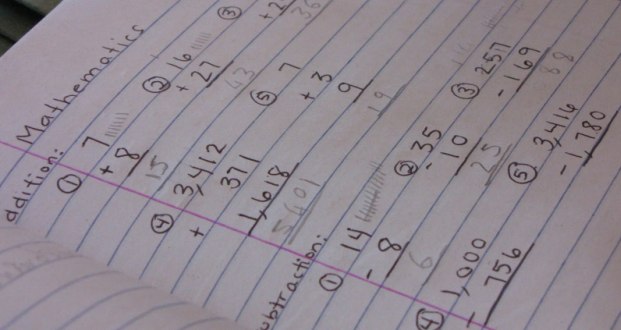 Mathematics
ddition:
① 7
+ 8
15
② 16
+ 27
43
③
+ 2
36
④ 3,412
371
+ 1,618
5401
⑤ 7
+ 3
9
19
ubtraction:
① 14
- 8
6
② 35
- 10
25
③ 257
- 169
88
④ 1,000
- 756
⑤ 3,416
- 1,780